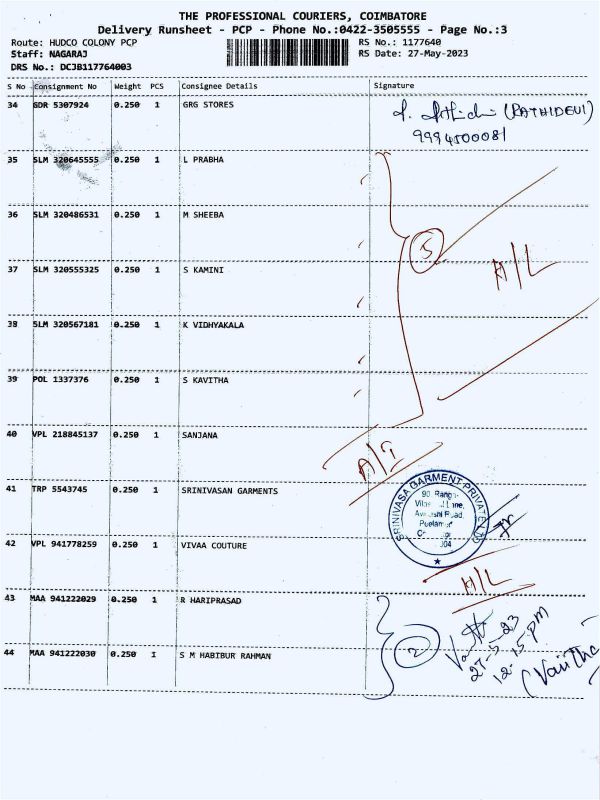 THE PROFESSIONAL COURIERS, COIMBATORE
Delivery Runsheet - PCP - Phone No.:0422-3505555 - Page No.:3
Route: HUDCO COLONY PCP
RS No.: 1177640
Staff: NAGARAJ
RS Date: 27-May-2023
DRS No.: DCJB117764003
S No Consignment No Weight PCS Consignee Details Signature
34 GDR 5307924 0.250 1 GRG STORES
(RATHIDEVI)
9994500081
35 SLM 320645555 0.250 1 L PRABHA
36 SLM 320486531 0.250 1 M SHEEBA
5
A/L
37 SLM 320555325 0.250 1 S KAMINI
38 SLM 320567181 0.250 1 K VIDHYAKALA
39 POL 1337376 0.250 1 S KAVITHA
40 VPL 218845137 0.250 1 SANJANA
A/I
41 TRP 5543745 0.250 1 SRINIVASAN GARMENTS
SRINIVASA GARMENT PRIVATE LTD
90, Ranga
Lane,
Road,
42 VPL 941778259 0.250 1 VIVAA COUTURE
A/L
43 MAA 941222029 0.250 1 R HARIPRASAD
2
27-5-23
12.15 pm
44 MAA 941222030 0.250 1 S M HABIBUR RAHMAN